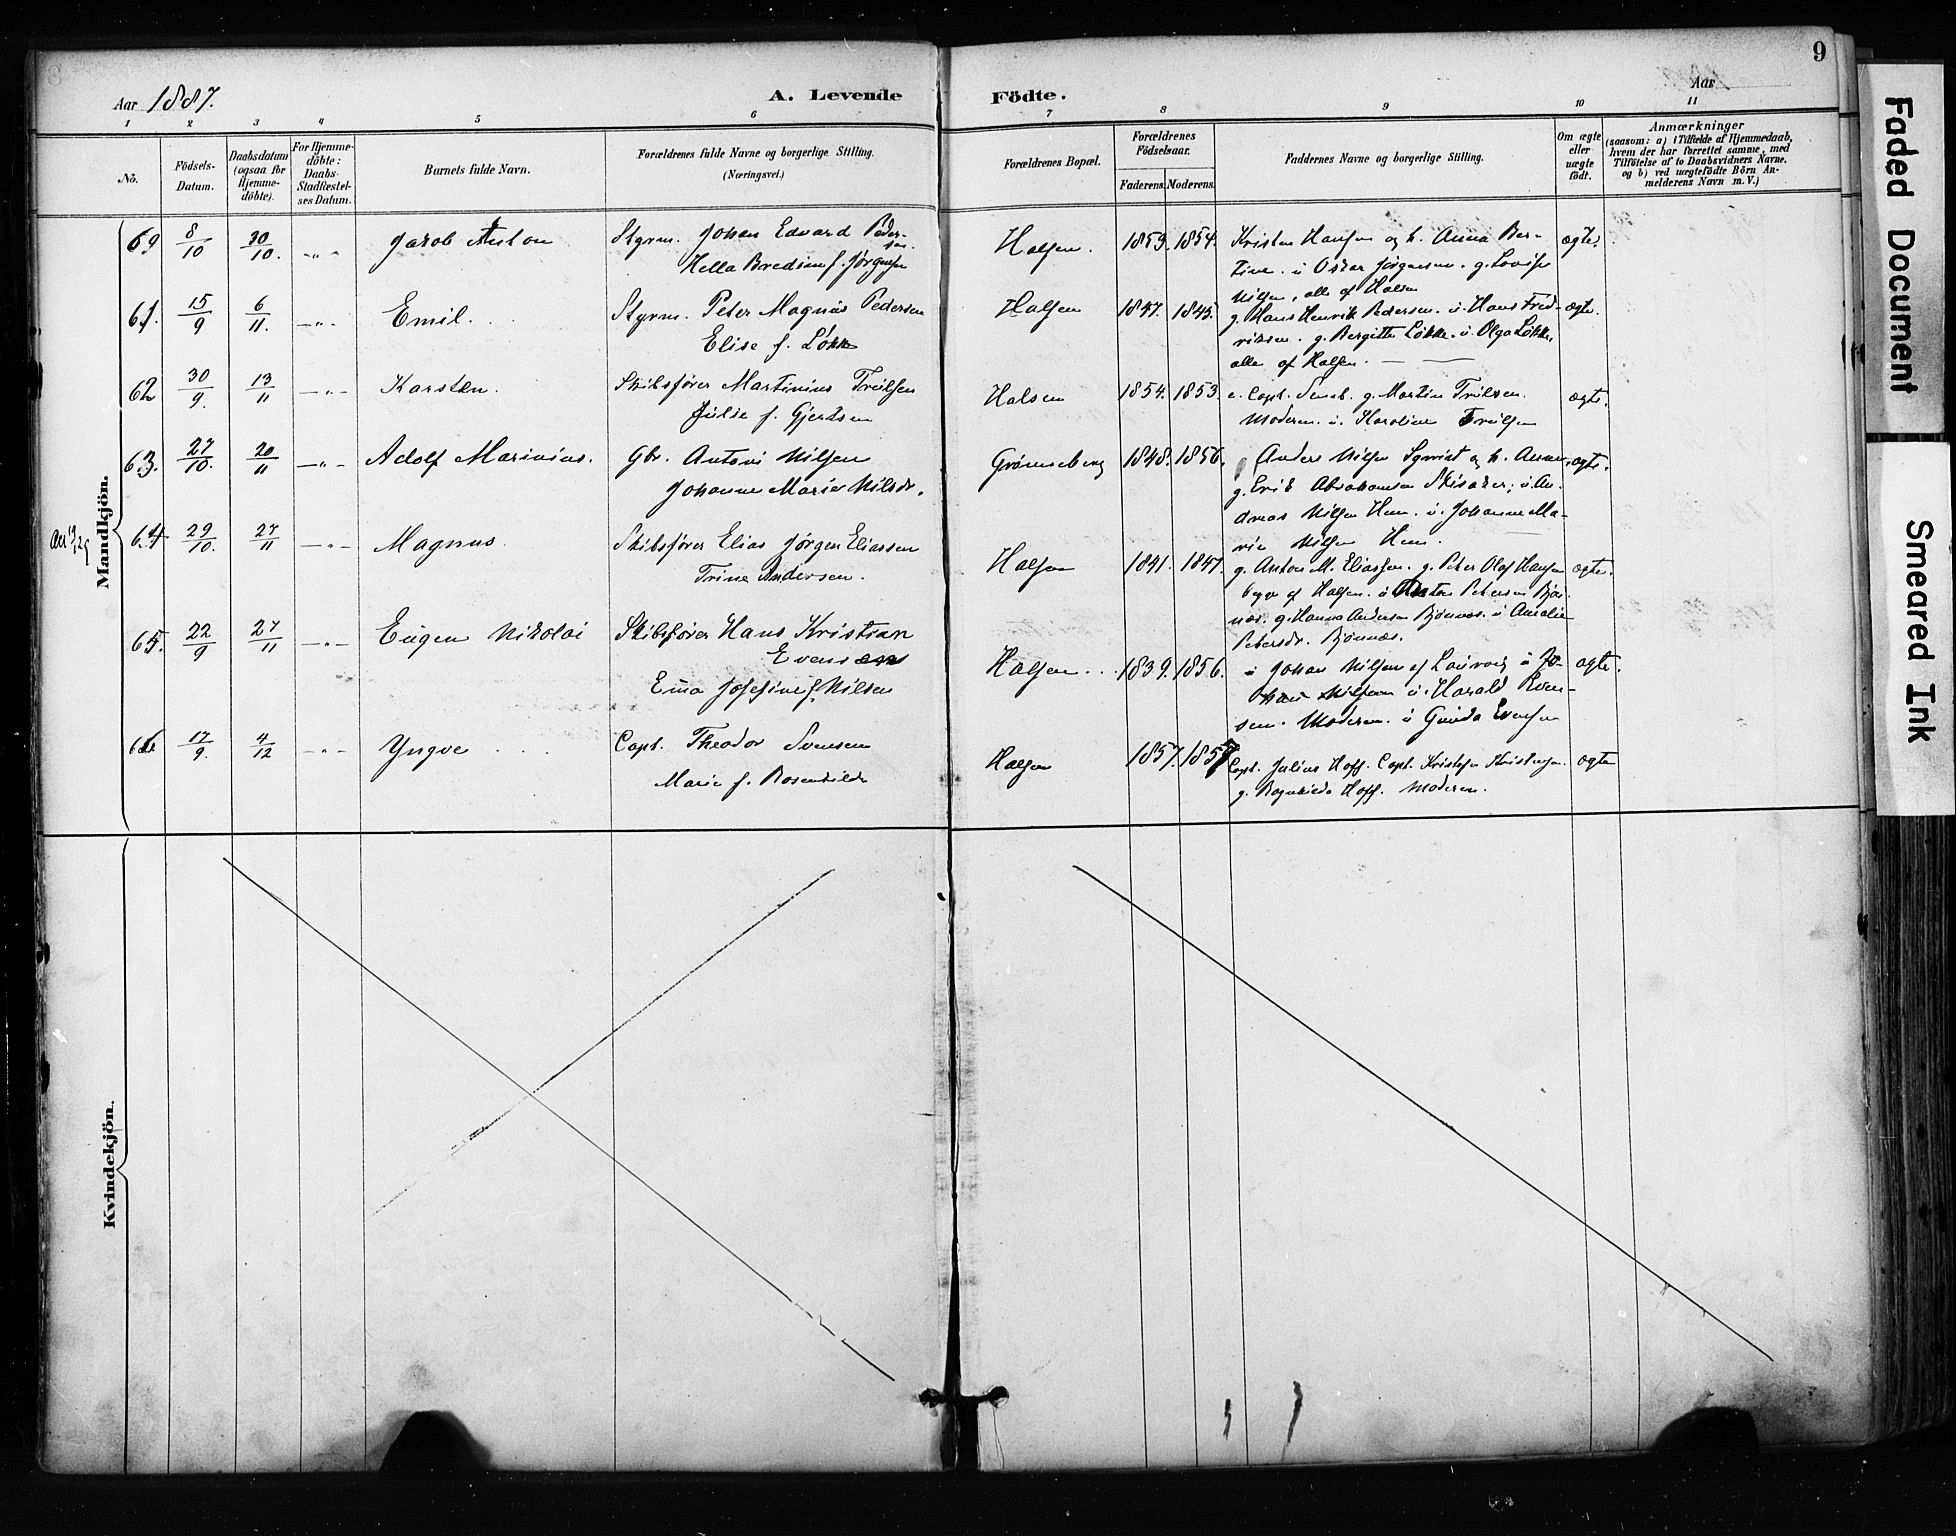 9
Aar 1887.
A. Levende Födte.
Aar
1 2 3 4 5 6 7 8 9 10 11
No.
Födsels-Datum.
Daabsdatum (ogsaa for Hjemme-döbte).
For Hjemme-döbte: Daabs-Stadfæstel-ses Datum.
Barnets fulde Navn.
Forældrenes fulde Navne og borgerlige Stilling.
(Næringsvei.)
Forældrenes Bopæl.
Forældrenes Födselsaar.
Faderens. Moderens.
Faddernes Navne og borgerlige Stilling.
Om ægte eller uægte födt.
Anmærkninger
(saasom: a) i Tilfælde af Hjemmedaab,
hvem der har forrettet samme, med
Tilföielse af to Daabsvidners Navne.
og b) ved uægtefödte Börn An-
melderens Navn m. V.)
Mandkjön.
8/10 30/10. -"- Jakob Anton Styrm. Johan Edvard Peder-
sen
f. Jørgensen
Halsen. 1859. 1854. Kristen Hansen og h. Anna Ber-
tine. u Oskar Jørgensen. g. Lovise
Nilsen, alle af Halsen ægte.
61. 15/9 6/11. -"- Emil. Styrm. Peter Magnus Pedersen
Elise f. Løkke
Halsen 1847. 1845. g. Hans Henrik Pedersen. u. Hans Fred-
riksen. g. Bergitte Løkke. u. Olga Løkke,
alle af Halsen. ægte.
62 30/9. 13/11 -"- Karsten. Skibsfører Martinius Treilsen
Julie f. Gjertsen
Halsen 1854. 1853. g. Martin Treilsen.
Moderen. u. Karoline Treilsen ægte.
63. 27/10. 20/11 -"- Adolf Marinius. Gbr. Antoni Nilsen
Johanne Marie Nilsdr.
Grønneberg 1848. 1856. Anders Nilsen og h.
g. Erik Abrahamsen u. An-
dreas Nilsen Hem. u. Johanne Ma-
rie Nilsen Hem. ægte.
64 29/10. 27/11 -"- Magnus. Skibsfører Elias Jørgen Eliassen
Trine Andersen.
Halsen 1841. 1847. g. Anton M. Eliassen. g. Peter Olaf Hansen
af Halsen. u Anton Petersen Bjøn-
næs. g. Hanna Andersen Bjønnæs. u Amalie
Petersdr. Bjønnæs. ægte.
65. 22/9 27/11 -"- Eugen Nikolai Skibsfører Hans Kristian
Evensen
Josefine f. Nilsen
Halsen. 1839. 1856. u Johan Nilsen af Laurvig u Jo-
Nilsen u. Harald Even-
sen. Moderen. u Gunda Evensen ægte.
66 17/9. 4/12 -"- Yngve Capt. Theodor Svensen
Marie f. Rosenkilde
Halsen 1857. 1857 Capt. Julius Hoff. Capt. Kristofer
g. Hoff. Moderen. ægte
Kvindekjön.
Faded Document
Smeared Ink